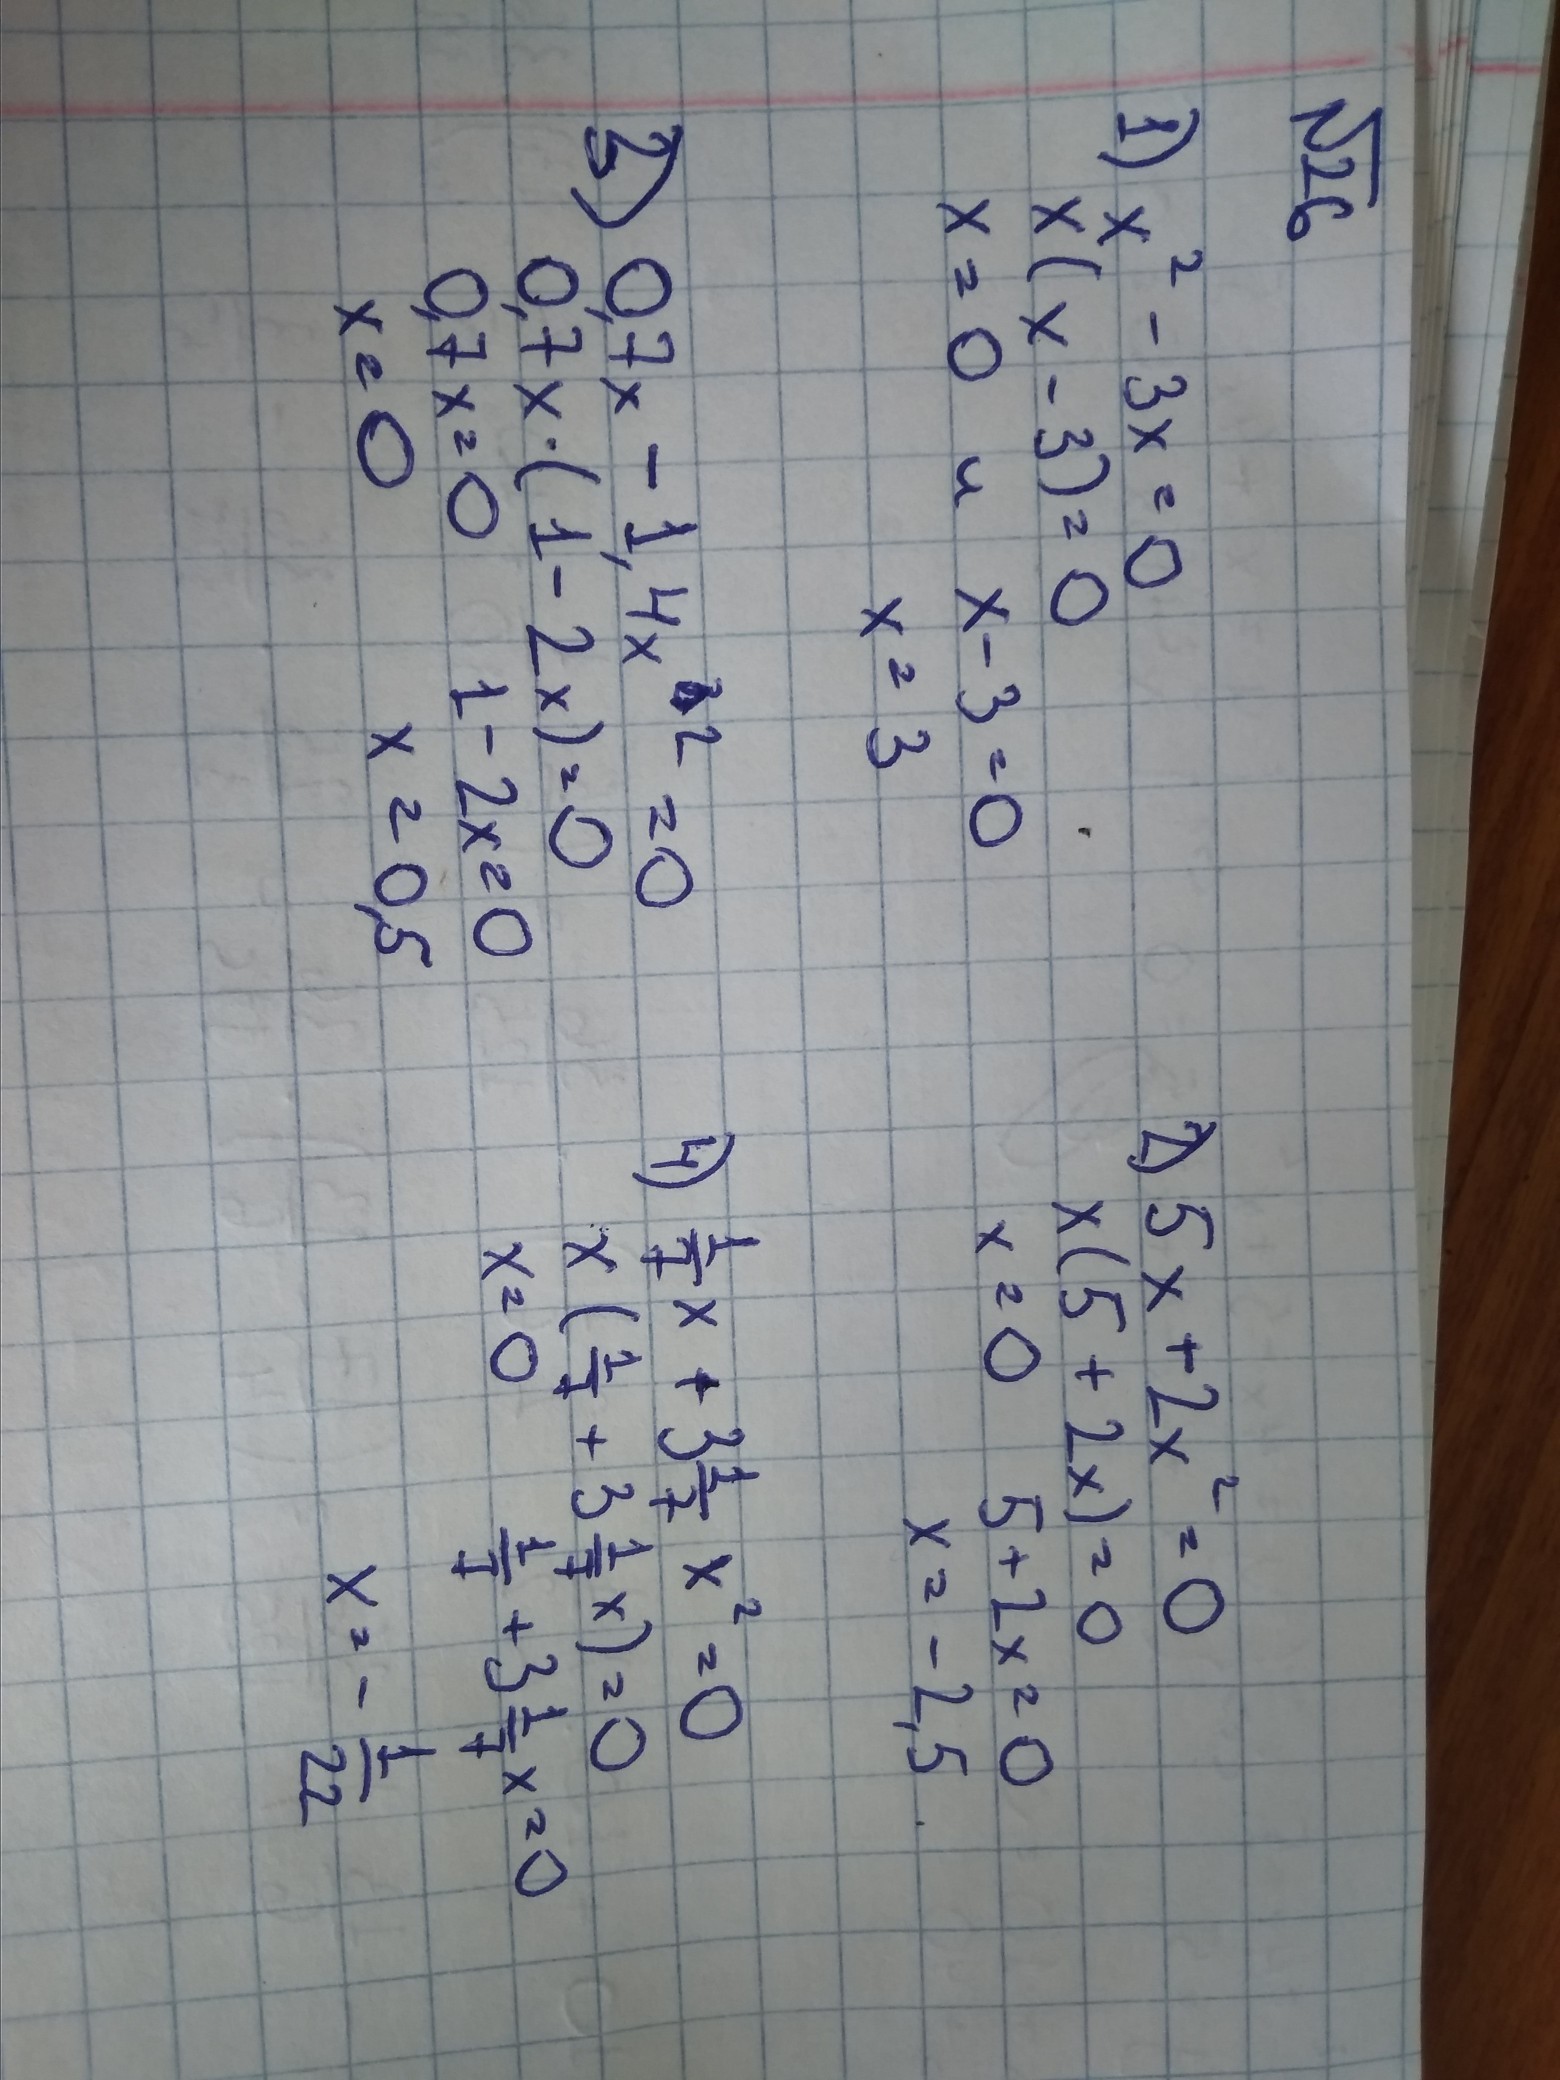 √26
1) x² - 3x = 0
x(x - 3) = 0
x = 0 и x - 3 = 0
x = 3
2) 5x + 2x² = 0
x(5 + 2x) = 0
x = 0 5 + 2x = 0
x = -2,5
3) 0,7x - 1,4x² = 0
0,7x · (1 - 2x) = 0
0,7x = 0 1 - 2x = 0
x = 0 x = 0,5
4) 1/7 x + 3 1/7 x² = 0
x(1/7 + 3 1/7 x) = 0
x = 0 1/7 + 3 1/7 x = 0
x = - 1/22